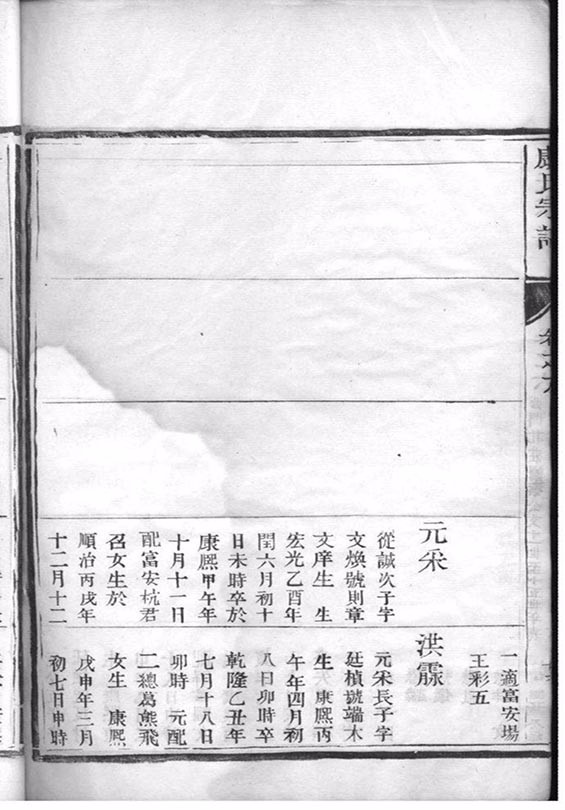 氏宗譜
卷之六
一適富安場
王彩五
元采
從誠次子字
文煥號則章
文庠生　生
宏光乙酉年
閏六月初十
日未時卒於
康熙甲午年
十月十一日
配富安杭君
召女生於
順治丙戌年
十二月十二
洪霢
元采長子字
廷楨號端木
生　康熙丙
午年四月初
八日卯時卒
乾隆乙丑年
七月十八日
卯時　元配
二總葛熊飛
女生　康熙
戊申年三月
初七日申時